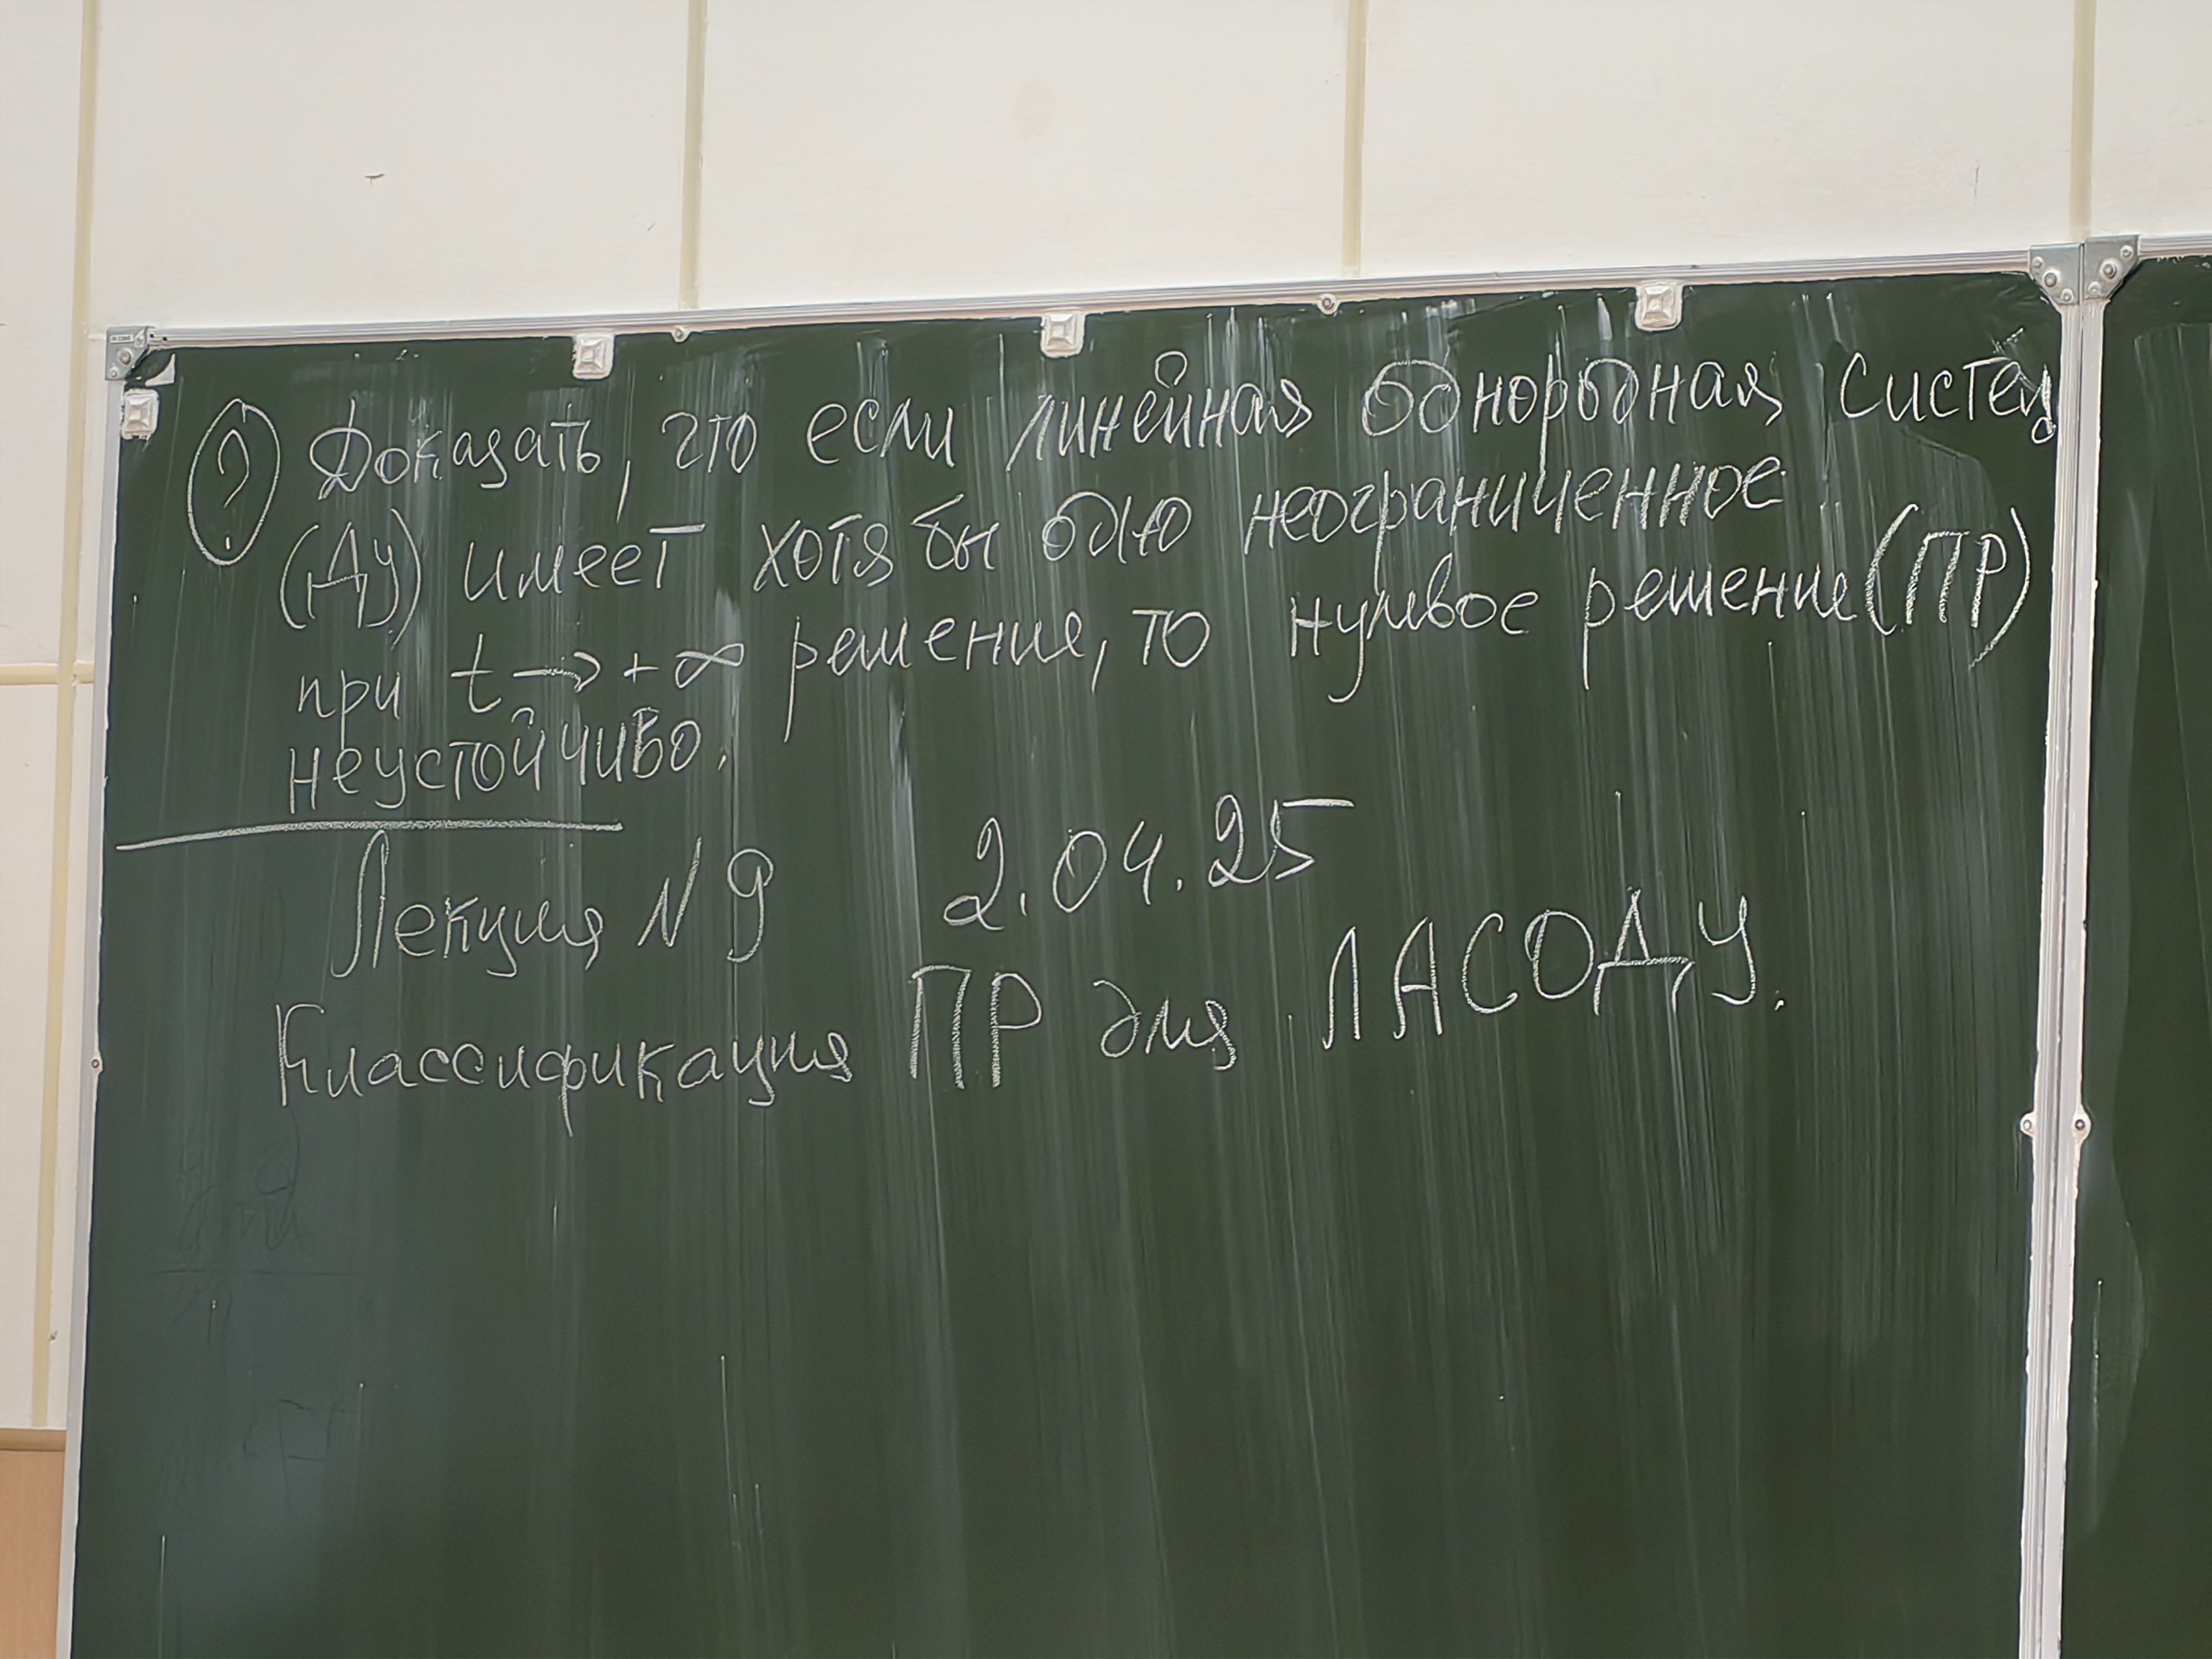 ? Доказать, что если линейная однородная систем
(ДУ) имеет хотя бы одно неограниченное
при t → + ∞ решение, то нулевое решение (ПР)
неустойчиво.
Лекция N 9 2.04.25
Классификация ПР для ЛАСОДУ.